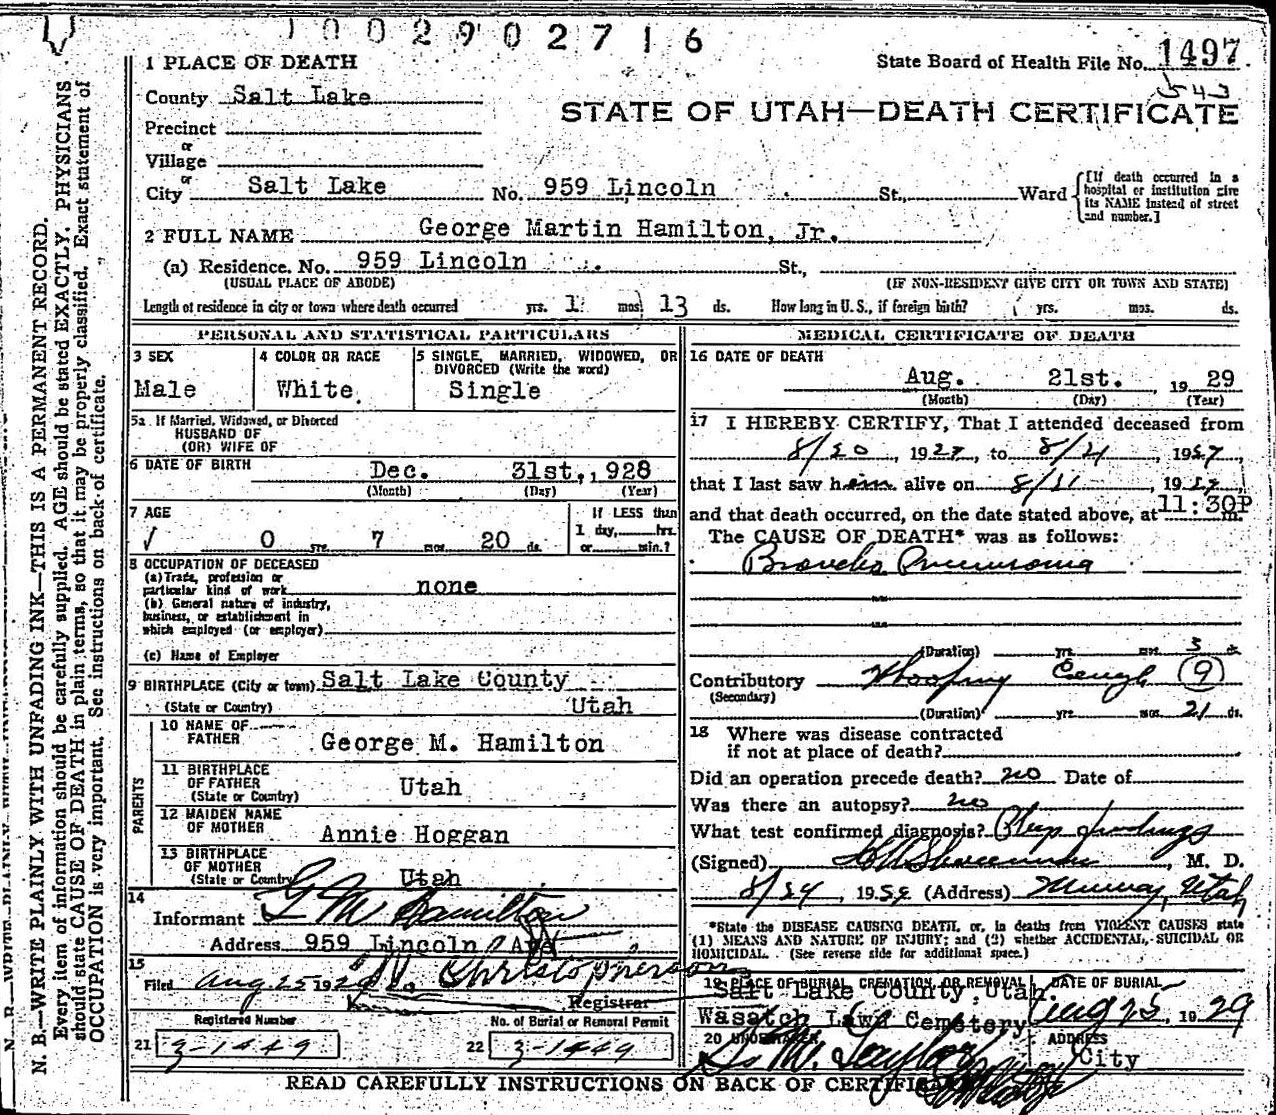 1002902716
1 PLACE OF DEATH
State Board of Health File No. 1497
543
County Salt Lake
STATE OF UTAH—DEATH CERTIFICATE
Precinct
or
Village
or
City Salt Lake No. 959 Lincoln St., Ward
[If death occurred in a hospital or institution give its NAME instead of street and number.]
2 FULL NAME George Martin Hamilton, Jr.
(a) Residence. No. 959 Lincoln St.,
(USUAL PLACE OF ABODE) (IF NON-RESIDENT GIVE CITY OR TOWN AND STATE)
Length of residence in city or town where death occurred yrs. 1 mos. 13 ds. How long in U. S., if foreign birth? yrs. mos. ds.
PERSONAL AND STATISTICAL PARTICULARS
3 SEX
Male
4 COLOR OR RACE
White
5 SINGLE, MARRIED, WIDOWED, OR
DIVORCED (Write the word)
Single
5a If Married, Widowed, or Divorced
HUSBAND OF
(OR) WIFE OF
6 DATE OF BIRTH Dec. 31st., 1928
(Month) (Day) (Year)
7 AGE
0 yrs. 7 mos. 20 ds.
If LESS than
1 day, hrs.
or min.?
8 OCCUPATION OF DECEASED
(a) Trade, profession or
particular kind of work none
(b) General nature of industry,
business, or establishment in
which employed (or employer)
(c) Name of Employer
9 BIRTHPLACE (City or town) Salt Lake County
(State or Country) Utah
PARENTS
10 NAME OF
FATHER George M. Hamilton
11 BIRTHPLACE
OF FATHER
(State or Country) Utah
12 MAIDEN NAME
OF MOTHER Annie Hoggan
13 BIRTHPLACE
OF MOTHER
(State or Country) Utah
14
Informant G M Hamilton
Address 959 Lincoln Ave
15
Filed Aug 25 1929 Christopherson
Registrar
Registered Number
21 3-1449
No. of Burial or Removal Permit
22 3-1449
MEDICAL CERTIFICATE OF DEATH
16 DATE OF DEATH
Aug. 21st. 1929
(Month) (Day) (Year)
17 I HEREBY CERTIFY, That I attended deceased from
8/20, 1929, to 8/21, 1929,
that I last saw him alive on 8/21, 1929,
and that death occurred, on the date stated above, at 11:30P m.
The CAUSE OF DEATH* was as follows:
Broncho Pneumonia
(Duration) yrs. mos. 3 ds.
Contributory Whooping Cough 9
(Secondary)
(Duration) yrs. mos. 21 ds.
18 Where was disease contracted
if not at place of death?
Did an operation precede death? no Date of
Was there an autopsy? no
What test confirmed diagnosis?
(Signed) , M. D.
8/24, 1929 (Address) Murray, Utah
*State the DISEASE CAUSING DEATH, or, in deaths from VIOLENT CAUSES state
(1) MEANS AND NATURE OF INJURY; and (2) whether ACCIDENTAL, SUICIDAL OR
HOMICIDAL. (See reverse side for additional space.)
19 PLACE OF BURIAL, CREMATION, OR REMOVAL
Salt Lake County, Utah
Wasatch Lawn Cemetery
DATE OF BURIAL
Aug 25, 1929
20 UNDERTAKER
Taylor
ADDRESS
City
READ CAREFULLY INSTRUCTIONS ON BACK OF CERTIFICATE
N. B.—WRITE PLAINLY WITH UNFADING INK—THIS IS A PERMANENT RECORD.
Every item of information should be carefully supplied. AGE should be stated EXACTLY. PHYSICIANS
should state CAUSE OF DEATH in plain terms, so that it may be properly classified. Exact statement of
OCCUPATION is very important. See instructions on back of certificate.